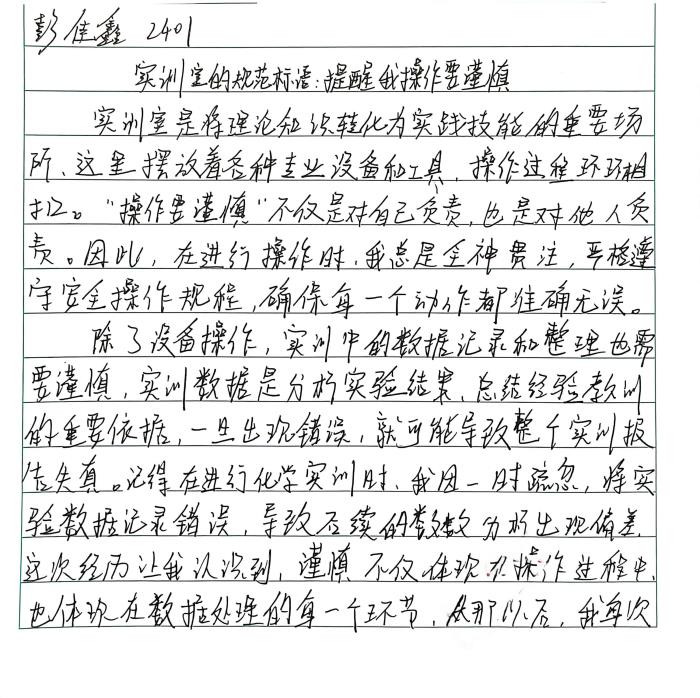 彭佳鑫 2401
实训室的规范标语:提醒我操作要谨慎
实训室是将理论知识转化为实践技能的重要场
所,这里摆放着各种专业设备和工具,操作过程环环相
扣。“操作要谨慎”不仅是对自己负责,也是对他人负
责。因此,在进行操作时,我总是全神贯注,严格遵
守安全操作规程,确保每一个动作都准确无误。
除了设备操作,实训中的数据记录和整理也需
要谨慎,实训数据是分析实验结果、总结经验教训
的重要依据,一旦出现错误,就可能导致整个实训报
告失真。记得在进行化学实训时,我因一时疏忽,将实
验数据记录错误,导致后续的数数分析出现偏差,
这次经历让我认识到,谨慎不仅体现在操作过程中,
也体现在数据处理的每一个环节,从那以后,我每次